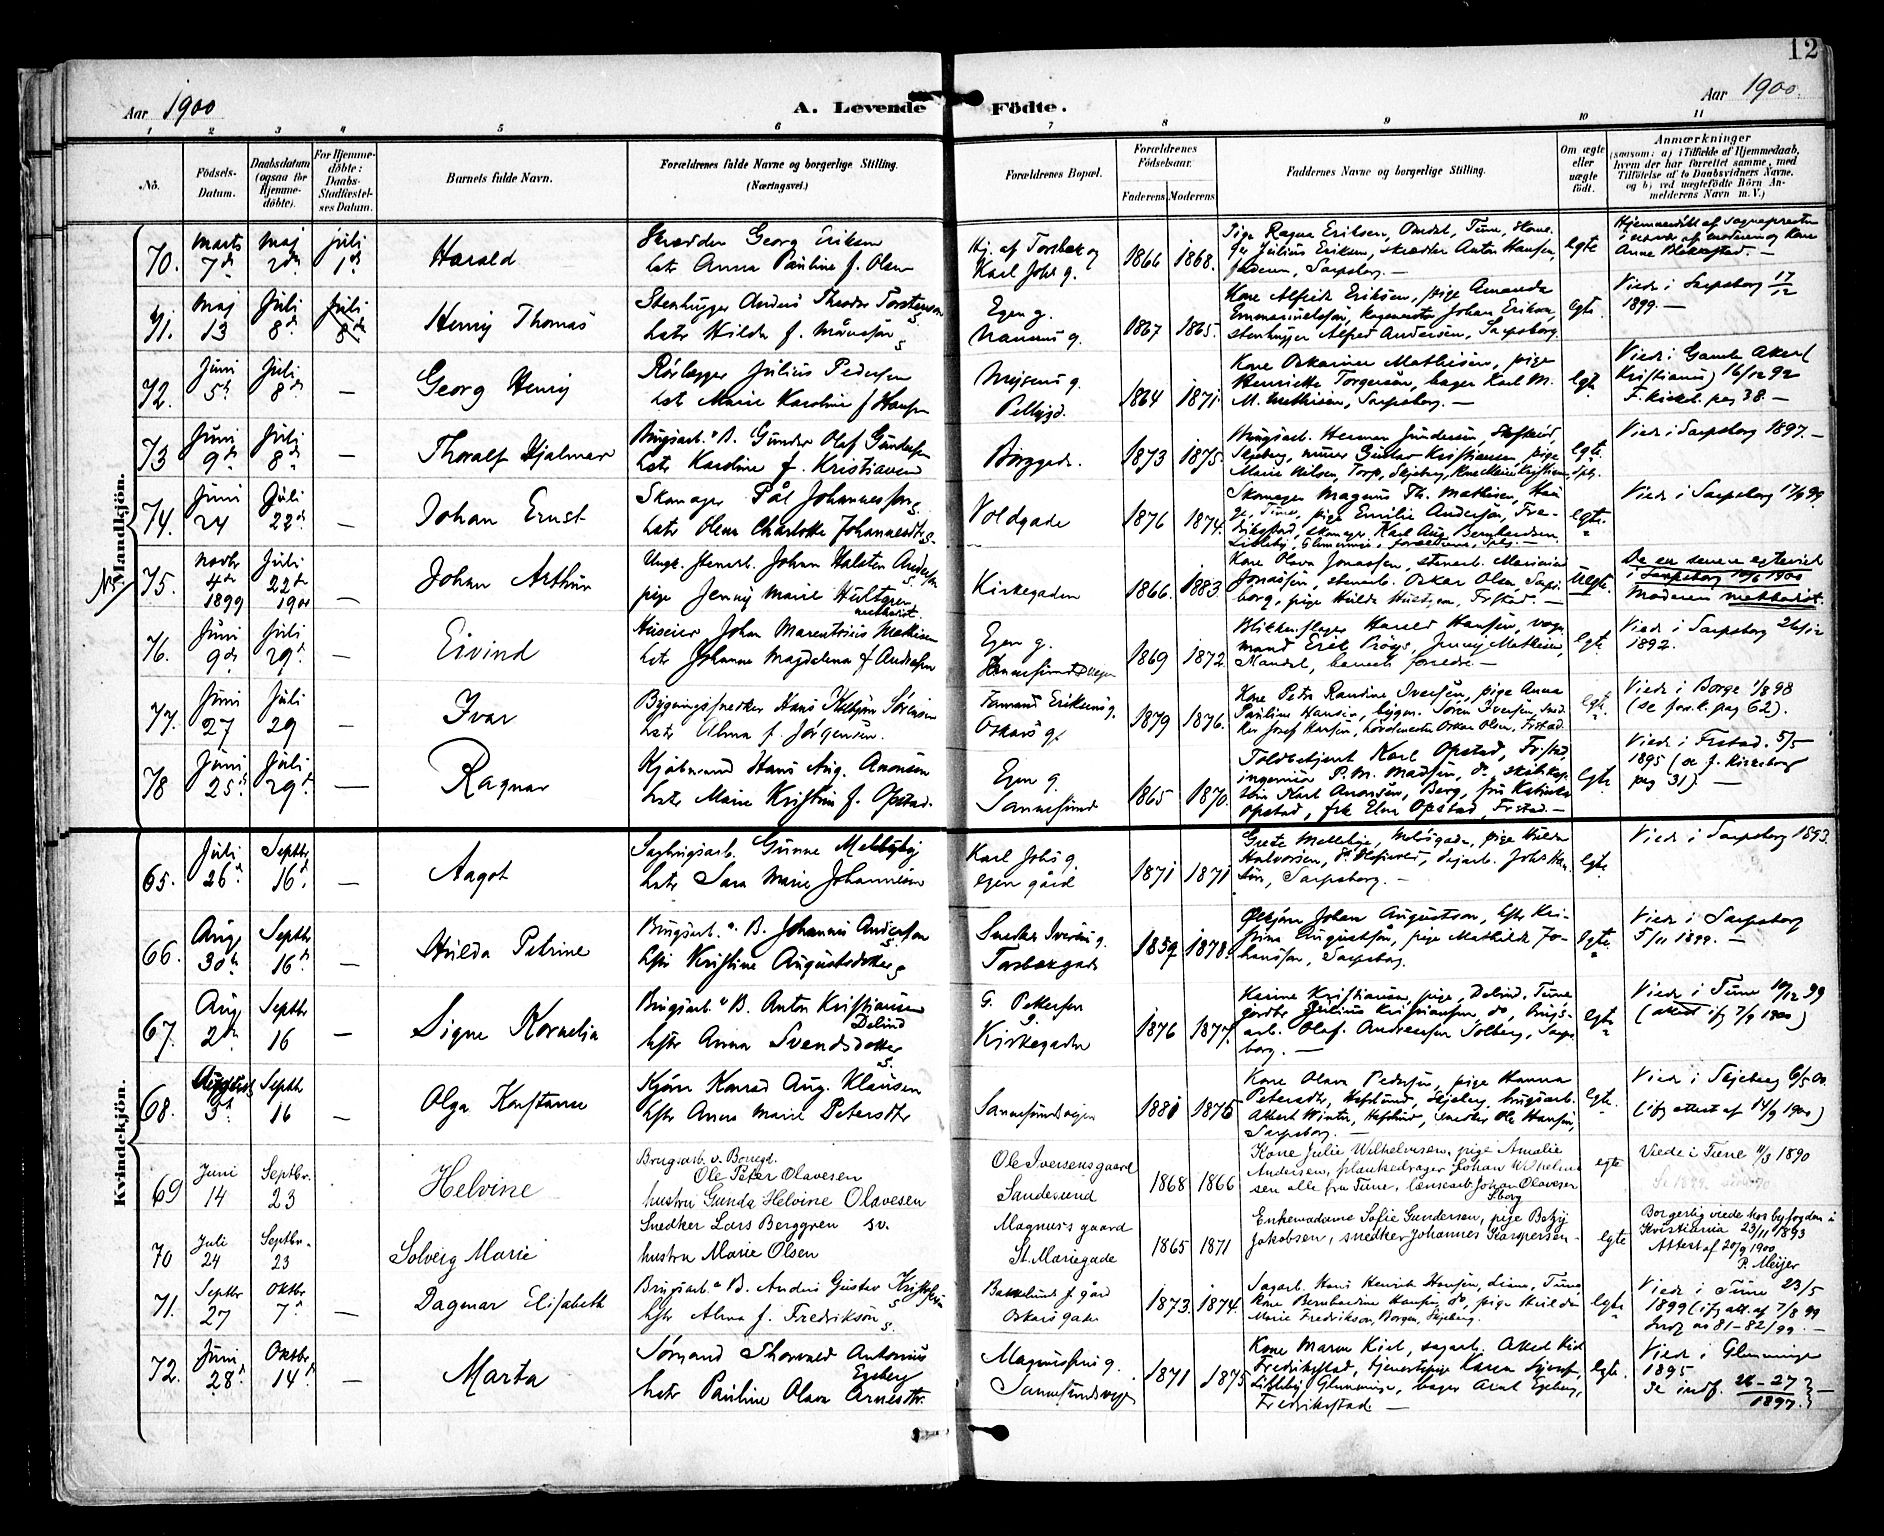 12
Aar 1900
A. Levende Födte.
Aar 1900.
1 2 3 4 5 6 7 8 9 10 11
No.
Födsels-Datum.
Daabsdatum (ogsaa for Hjemme-döbte).
For Hjemme-döbte: Daabs-Stadfæstel-ses Datum.
Barnets fulde Navn.
Forældrenes fulde Navne og borgerlige Stilling.
(Næringsvei.)
Forældrenes Bopæl.
Forældrenes Födselsaar.
Faderens Moderens
Faddernes Navne og borgerlige Stilling.
Om ægte eller uægte födt.
Anmærkninger
(saasom: a) i Tilfælde af Hjemmedaab, hvem der har forrettet samme, med Tilföielse af to Daabsvidners Navne, og b) ved uægtefödte Börn An-melderens Navn m. V.)
Mandkjön.
70. Marts 7de Maj 2de Juli 1de
Harald
Skrædder Georg Eriksen
hstr Anna Pauline f. Olsen
Hj. af Torsbæk og
Karl Johs g.
1866 1868.
Pige Ragna Eriksen, Tune, Kone
Julius Eriksen, skrædder Anton Hansen,
faderen, Sarpsborg. —
egte
71. Maj 13 Juli 8de Juli 8de
Henrij Thomas
Stenhugger Anders Theodor Torstenson
hstr Hilda f. Månsson
Egen g.
1867 1865.
Kone Alfrida Eriksen, pige Amanda
Emmanuelsson, Johan Erikson,
stenhugger Alfred Andersen, Sarpsborg.
egte.
Viede i Sarpsborg 17/12
1899. —
72. Juni 5te Juli 8de —
Georg Henrij
Rörlægger Julius Pedersen
hstr Marie Karoline f Hansen
1864 1871.
Kone Oskarine Mathisen, pige
Henriette Torgersen, bager Karl M.
M. Mathisen, Sarpsborg. —
egte.
Viede i Gamle Aker (
Kristiania) 16/12 92
F. kirkeb. pag 38. —
73 Juni 9de Juli 8de —
Thoralf Hjalmar
Brugsarb. v. B. Gunder Olaf Gundersen
hstr Karoline f. Kristiansen
Borggade.
1873 1875.
Brugsarb. Herman Gundersen,
Skjeberg, Gunder Kristiansen, pige
Marie Nilsen, Torp, Skjeberg, Kone Marie Kristiansen, Spbg.
egte.
Viede i Sarpsborg 1897. —
74. Juni 24 Juli 22de —
Johan Ernst
Skomager Pål Johannesson
hstr Olena Charlotte Johannesdtr
Voldgade
1876 1874.
Skomager Magnus Th. Mathisen,
Tune, pige Emilie Andersen, Fre-
drikstad, skomager Karl Aug. Berntsen
egte.
Viede i Sarpsborg 17/9 99.
75. Novbr 4de 1899 Juli 22de 1900 —
Johan Arthur
Ungk. stenarb. Johan Halsten Andersson
pige Jenny Marie Hultgren
methodist.
Kirkegaden
1866. 1883.
Kone Olava Jonassen, stenarb. Marinius
Jonassen, stenarb. Oskar Olsen, Sarps-
borg, pige Hulda Hultgren, Frstad. —
Uegte.
De er senere egteviet
i Sarpsborg 1900
Moderen methodist.
76. Juni 9de Juli 29de —
Eivind
Huseier Johan Marentsius Mathisen
hstr Johanne Magdalena f Andersen
Egen g.
Sannesundsveien
1869 1872.
Blikkenslager Harald Hansen, vogn-
mand Erik Prøys, Jenny Mathisen,
barnets forældre —
egte
Viede i Sarpsborg 26/12
1892.
77. Juni 27 Juli 29 —
Ivar
Bygningssnedker Hans Kolbjørn Sørensen
hstr Alma f. Jørgensen.
Formand Eriksens g.
Oskars g.
1879 1876.
Kone Petra Randine Iversen, pige Anna
Pauline Hansen, bygm. Søren Iversen, sned-
ker Josef Hansen, Oskar Olsen, Frstad.
egte.
Viede i Borge 1/8 98
(se forl. pag 62).
78 Juni 25de Juli 29de —
Ragnar
Kjøbmand Hans Aug. Aronsen
hstr Marie Kristine f. Opstad.
Egen g.
Sannesund
1865 1870.
Toldbetjent Karl Opstad, Frstad,
ingeniør P. M. Madsen, do,
Karl Aronsen, Berg, frk Kathinka
Opstad, frk Elna Opstad, Frstad. —
egte
Viede i Frstad. 5/5
1895 (se f. Kirkebog
pag 31). —
Kvindekjön.
65. Juli 26de Septbr 16de —
Aagot
Sagbrugsarb. Gunne Mellbye
hstr Sara Marie Johannesen
Karl Johs g.
egen gård
1871 1871
egte.
Viede i Sarpsborg 1893.
66. Aug. 30te Septbr 16de —
Hulda Petrine
Brugsarb. v. B. Johannes Anderson
hstr Kristine Augustsdotter
Snedker Iversens g.
Torsbækgade
1859 1878.
Johan Augustson, hstr Kri-
stina Augustson, pige Mathilde Jo-
hansson, Sarpsborg.
egte.
Viede i Sarpsborg
5/11 1899. —
67. Aug 2de Septbr 16 —
Signe Kornelia
Brugsarb. v B. Anton Kristiansen
Delind
hstr Anna Svendsdotter
G. Pettersen
g.
Kirkegaden
1876 1877.
Karine Kristiansen, pige, Delind, Tune
Julius Kristiansen do, brugs-
arb. Olaf Andreassen Solberg, Sarps-
borg. —
egte.
Viede i Tune 10/12 99
(attest if 7/9 1900)
68. August 3de Septbr 16 —
Olga Konstanse
Kjører Konrad Aug. Klausen
hstr Anna Marie Petersdtr
Sannesundsveien
1881 1875
Kone Olava Pedersen, pige Hanna
Petersdtr, Hafslund, Skjeberg, brugsarb.
Albert Winter, Hafslund, snedker Ole Hansen,
Sarpsborg. —
egte.
Viede i Skjeberg 6/5 00.
(ifg attest af 14/9 1900)
69 Juni 14 Septbr. 23
Helvine
Brugsarb. v. Borregd.
Ole Peter Olavesen
hustru Gunda Helvine Olavesen
Ole Iversensgaard
Sandesund
1868 1866
Kone Julie Wilhelmsen, pige Amalie
Andersen, plankedrager Johan Wilhelm-
sen alle fra Tune, lænsearb. Johan Olavesen
Sborg
egte
Viede i Tune 11/3 1890
70 Juli 24 Septbr. 23
Solveig Marie
Snedker Lars Berggren sv.
hustru Marie Olsen
Magnus's gaard
St. Mariegade
1865 1871
Enkemadame Sofie Gundersen, pige Betzy
Jakobsen, snedker Johannes Kaspersen.
egte
Borgerlig viede hos byfogden i
Kristiania 23/11 1893
Attest af 20/9 1900.
P. Meijer
71. Septbr 27 Oktbr 7de —
Dagmar Elisabeth
Brugsarb. v B. Anders Gustav Kristoferson
hstr Alma f. Fredrikson
gård
Oskarsgade
1873. 1874.
Sagarb. Hans Henrik Hansen, Tune,
Kone Bernhardine Hansen do, pige Hulda
Marie Fredrikson, Borgen, Skjeberg.
egte.
Viede i Tune 23/5
1899 (ifg att. af 7/8 99
Indf. ns 81-82/99. —
72. Juni 28de Oktbr 14de —
Marta
Sørmand Thorvald Antonius
Egeberg
hstr Pauline Olava Arnesdtr.
Magnussens g.
Sannesundsveien
1871 1875
Kone Maren Kise, sagarb. Aksel Kise
Fredrikstad, tjenestepige Karen
Lisleby, Glemminge, bager Arnt Egeberg,
Fredrikstad —
egte.
Viede i Glemminge
1895.
Se indf. 26-27/1897. —